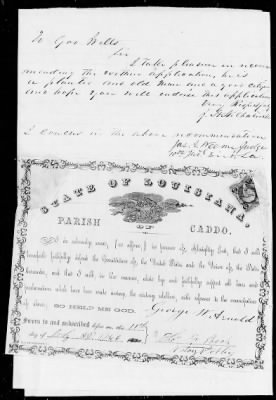 To Gov. Wells
Sir
I take pleasure in recom
mending the within application, he is
a planter and old man and a good citizen
and hope you will endorse this application
Very Respectfully
I concur in the above recommendation
STATE OF LOUISIANA,
PARISH OF CADDO.
I do solemnly swear, (or affirm,) in presence of Almighty God, that I will
henceforth faithfully defend the Constitution of the United States and the Union of the States
thereunder, and that I will, in like manner, abide by and faithfully support all laws and
proclamations which have been made during the existing rebellion, with reference to the emancipation
of slaves, SO HELP ME GOD.
George W. Arnold
Sworn to and subscribed before me this 18th
day of July